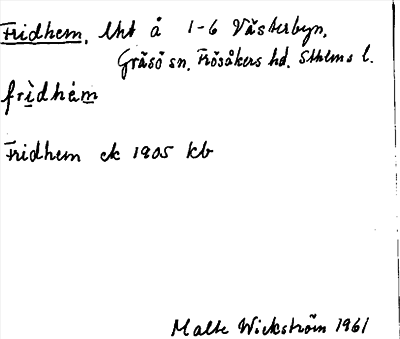 Fridhem, lht å 1-6 Västerbyn,
Gräsö sn, Frösåkers hd. Sthlms l.
frìdhém
Fridhem ek 1905 kb
Malte Wickström 1961